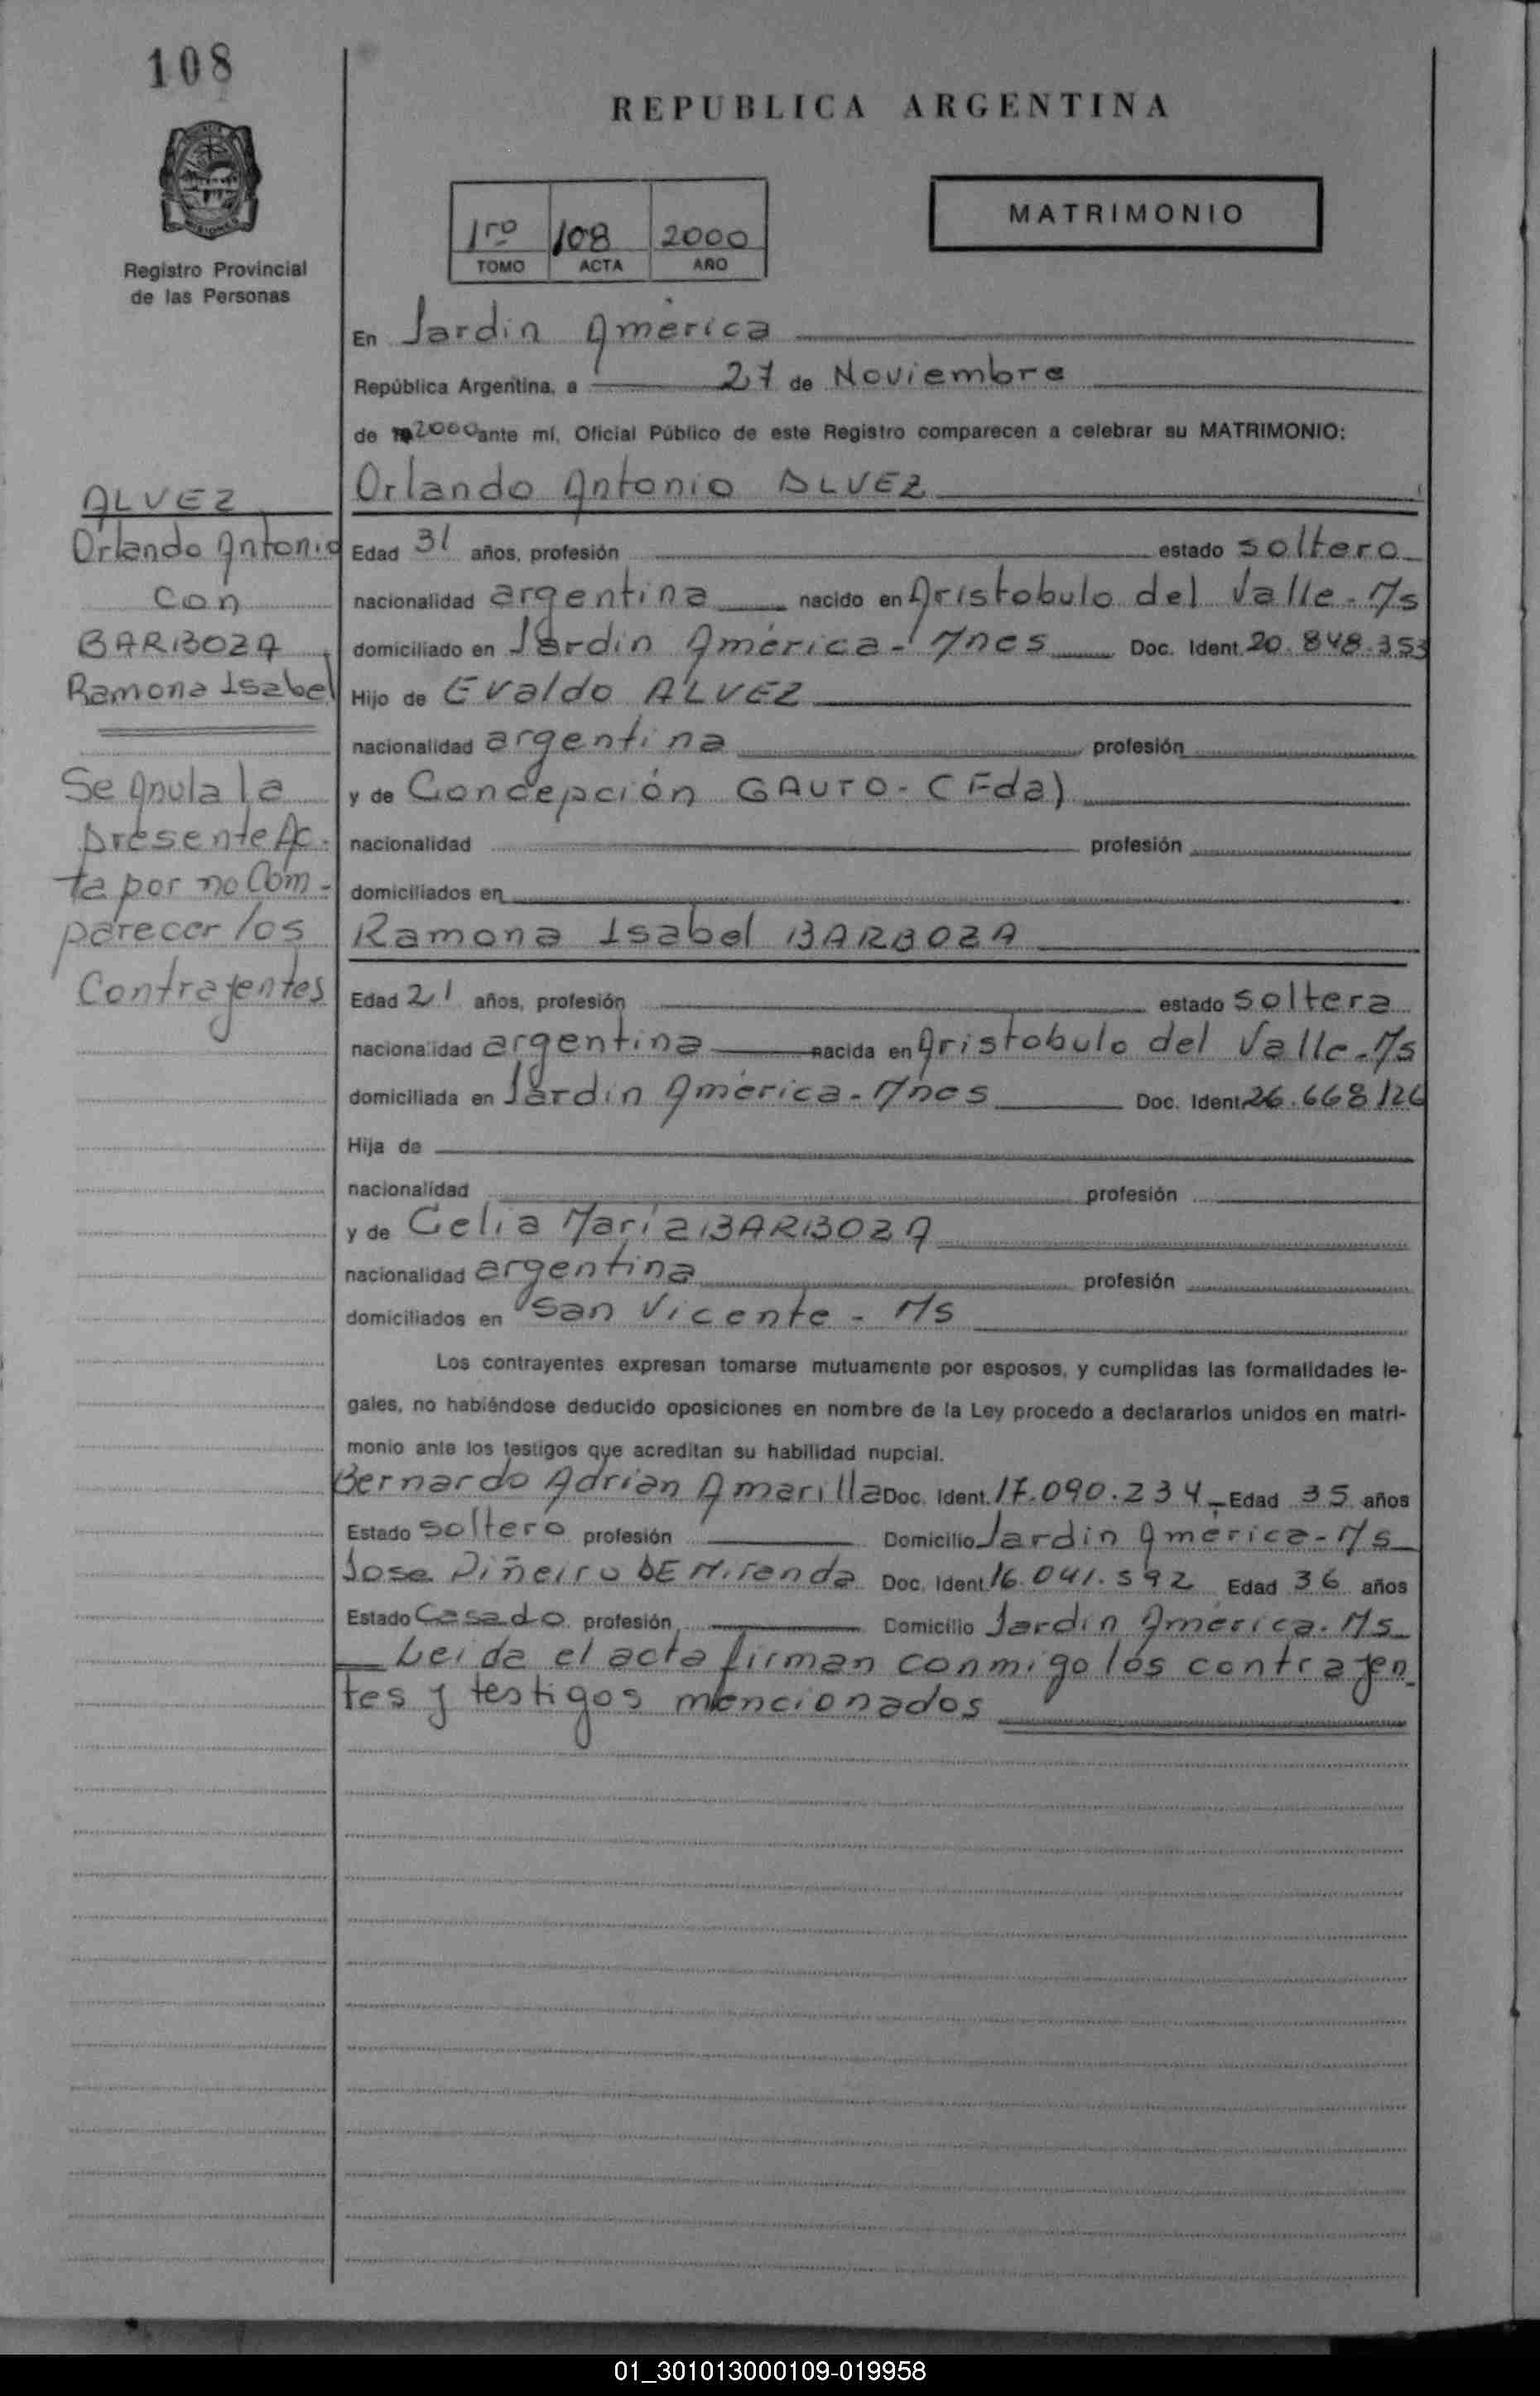 108
REPUBLICA ARGENTINA
1ro 108 2000
TOMO ACTA AÑO
MATRIMONIO
Registro Provincial
de las Personas
En Jardin América
República Argentina, a 27 de Noviembre
de 2000 ante mí, Oficial Público de este Registro comparecen a celebrar su MATRIMONIO:
Orlando Antonio ALVEZ
Edad 31 años, profesión estado soltero
nacionalidad argentina nacido en Aristobulo del Valle - Ms
domiciliado en Jardin América - Mnes Doc. Ident. 20.848.353
Hijo de Evaldo ALVEZ
nacionalidad argentina profesión
y de Concepción GAUTO - (Fda)
nacionalidad profesión
domiciliados en
Ramona Isabel BARBOZA
Edad 21 años, profesión estado soltera
nacionalidad argentina nacida en Aristobulo del Valle - Ms
domiciliada en Jardin América - Mnes Doc. Ident. 26.668.126
Hija de
nacionalidad profesión
y de Celia María BARBOZA
nacionalidad argentina profesión
domiciliados en San Vicente - Ms
Los contrayentes expresan tomarse mutuamente por esposos, y cumplidas las formalidades le-
gales, no habiéndose deducido oposiciones en nombre de la Ley procedo a declararlos unidos en matri-
monio ante los testigos que acreditan su habilidad nupcial.
Bernardo Adrian Amarilla Doc. Ident. 17.090.234 Edad 35 años
Estado soltero profesión Domicilio Jardin América - Ms
Jose Piñeiro DE Miranda Doc. Ident. 16.041.592 Edad 36 años
Estado Casado profesión Domicilio Jardin América - Ms
Leida el acta firman conmigo los contrayen-
tes y testigos mencionados
ALVEZ
Orlando Antonio
Con
BARBOZA
Ramona Isabel
Se Anula la
presente Ac-
ta por no Com-
parecer los
Contrayentes
01_301013000109-019958